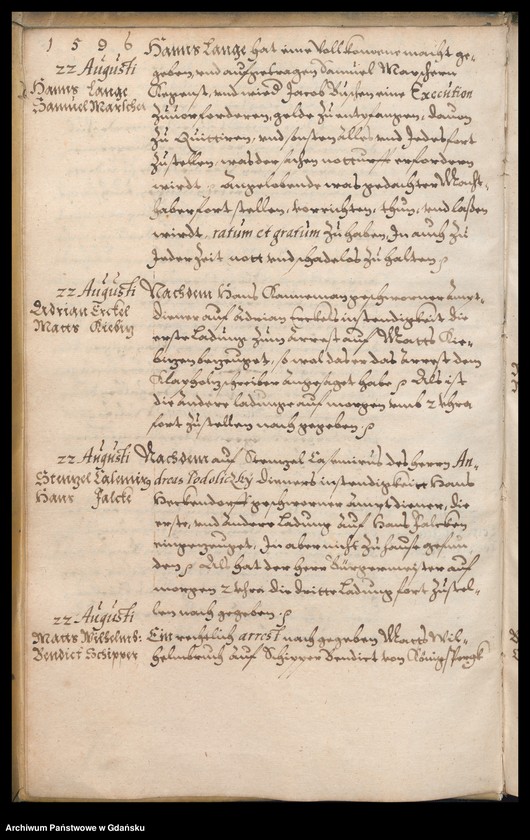 1 5 9 6
22 Augusti
Hanns Lange
Samuel Marscher
Hanns Lange hat eine Vollkommene macht ge-
geben vnd aufgetragen Samuel Marschern
wied. Jacob Buschen eine Execution
zuuorforderen, gelde zu entpfangen, dauon
zu Quittiren, vnd sonsten alles vnd Jedes fort
zustellen, was der sachen notturfft erforderen
wirdt, angelobende was gedachter Macht-
haber fort stellen, vorrichten, thun, vnd laßen
wirdt, ratum et gratum zu haben, In auch zu
Jeder Zeit nott vnd schadelos zu halten.
22 Augusti
Adrian Erckel
Matts Kiebitz
Nachdem Hans Kanneman geschworner ampt-
diener auf Adrian Erckels instendigkeit die
erste Ladung zum arrest auf Matts Kie-
bitzen bezeuget, so wol das er das arrest dem
Klapholtzschreiber angesaget habe. Als ist
die andere ladunge auf morgen vmb 2 vhra
fort zustellen nachgegeben.
22 Augusti
Stenzel
Hans Falcke
Nachdem auf Stenzel Casimirus des herrn An-
dreas Podolitzky dieners instendigkeitt Hans
Heckendorff geschworner amptdiener, die
erste, vnd andere Ladung auf Hans Falcken
eingezeuget, In aber nicht zu hause gefun-
den. Als hat der herr Bürgermeister auf
morgen 2 vhra die dritte Ladung fort zustel-
len nachgegeben.
22 Augusti
Matts Wilhelmb:
Bendict Schipper
Ein rechtlich arrest nachgegeben Matts Wil-
helmbruch auf Schipper Bendict von Königspergk
Archiwum Państwowe w Gdańsku